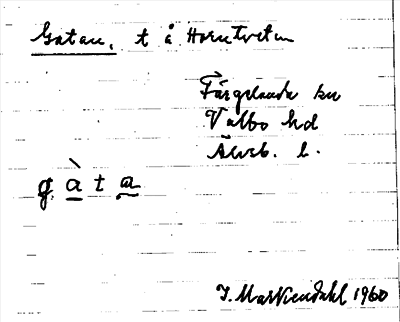 Gatan, t å Horntveten
Färgelanda sn
Valbo hd
Älvsb. l.
g à t a
J. Markendahl 1960